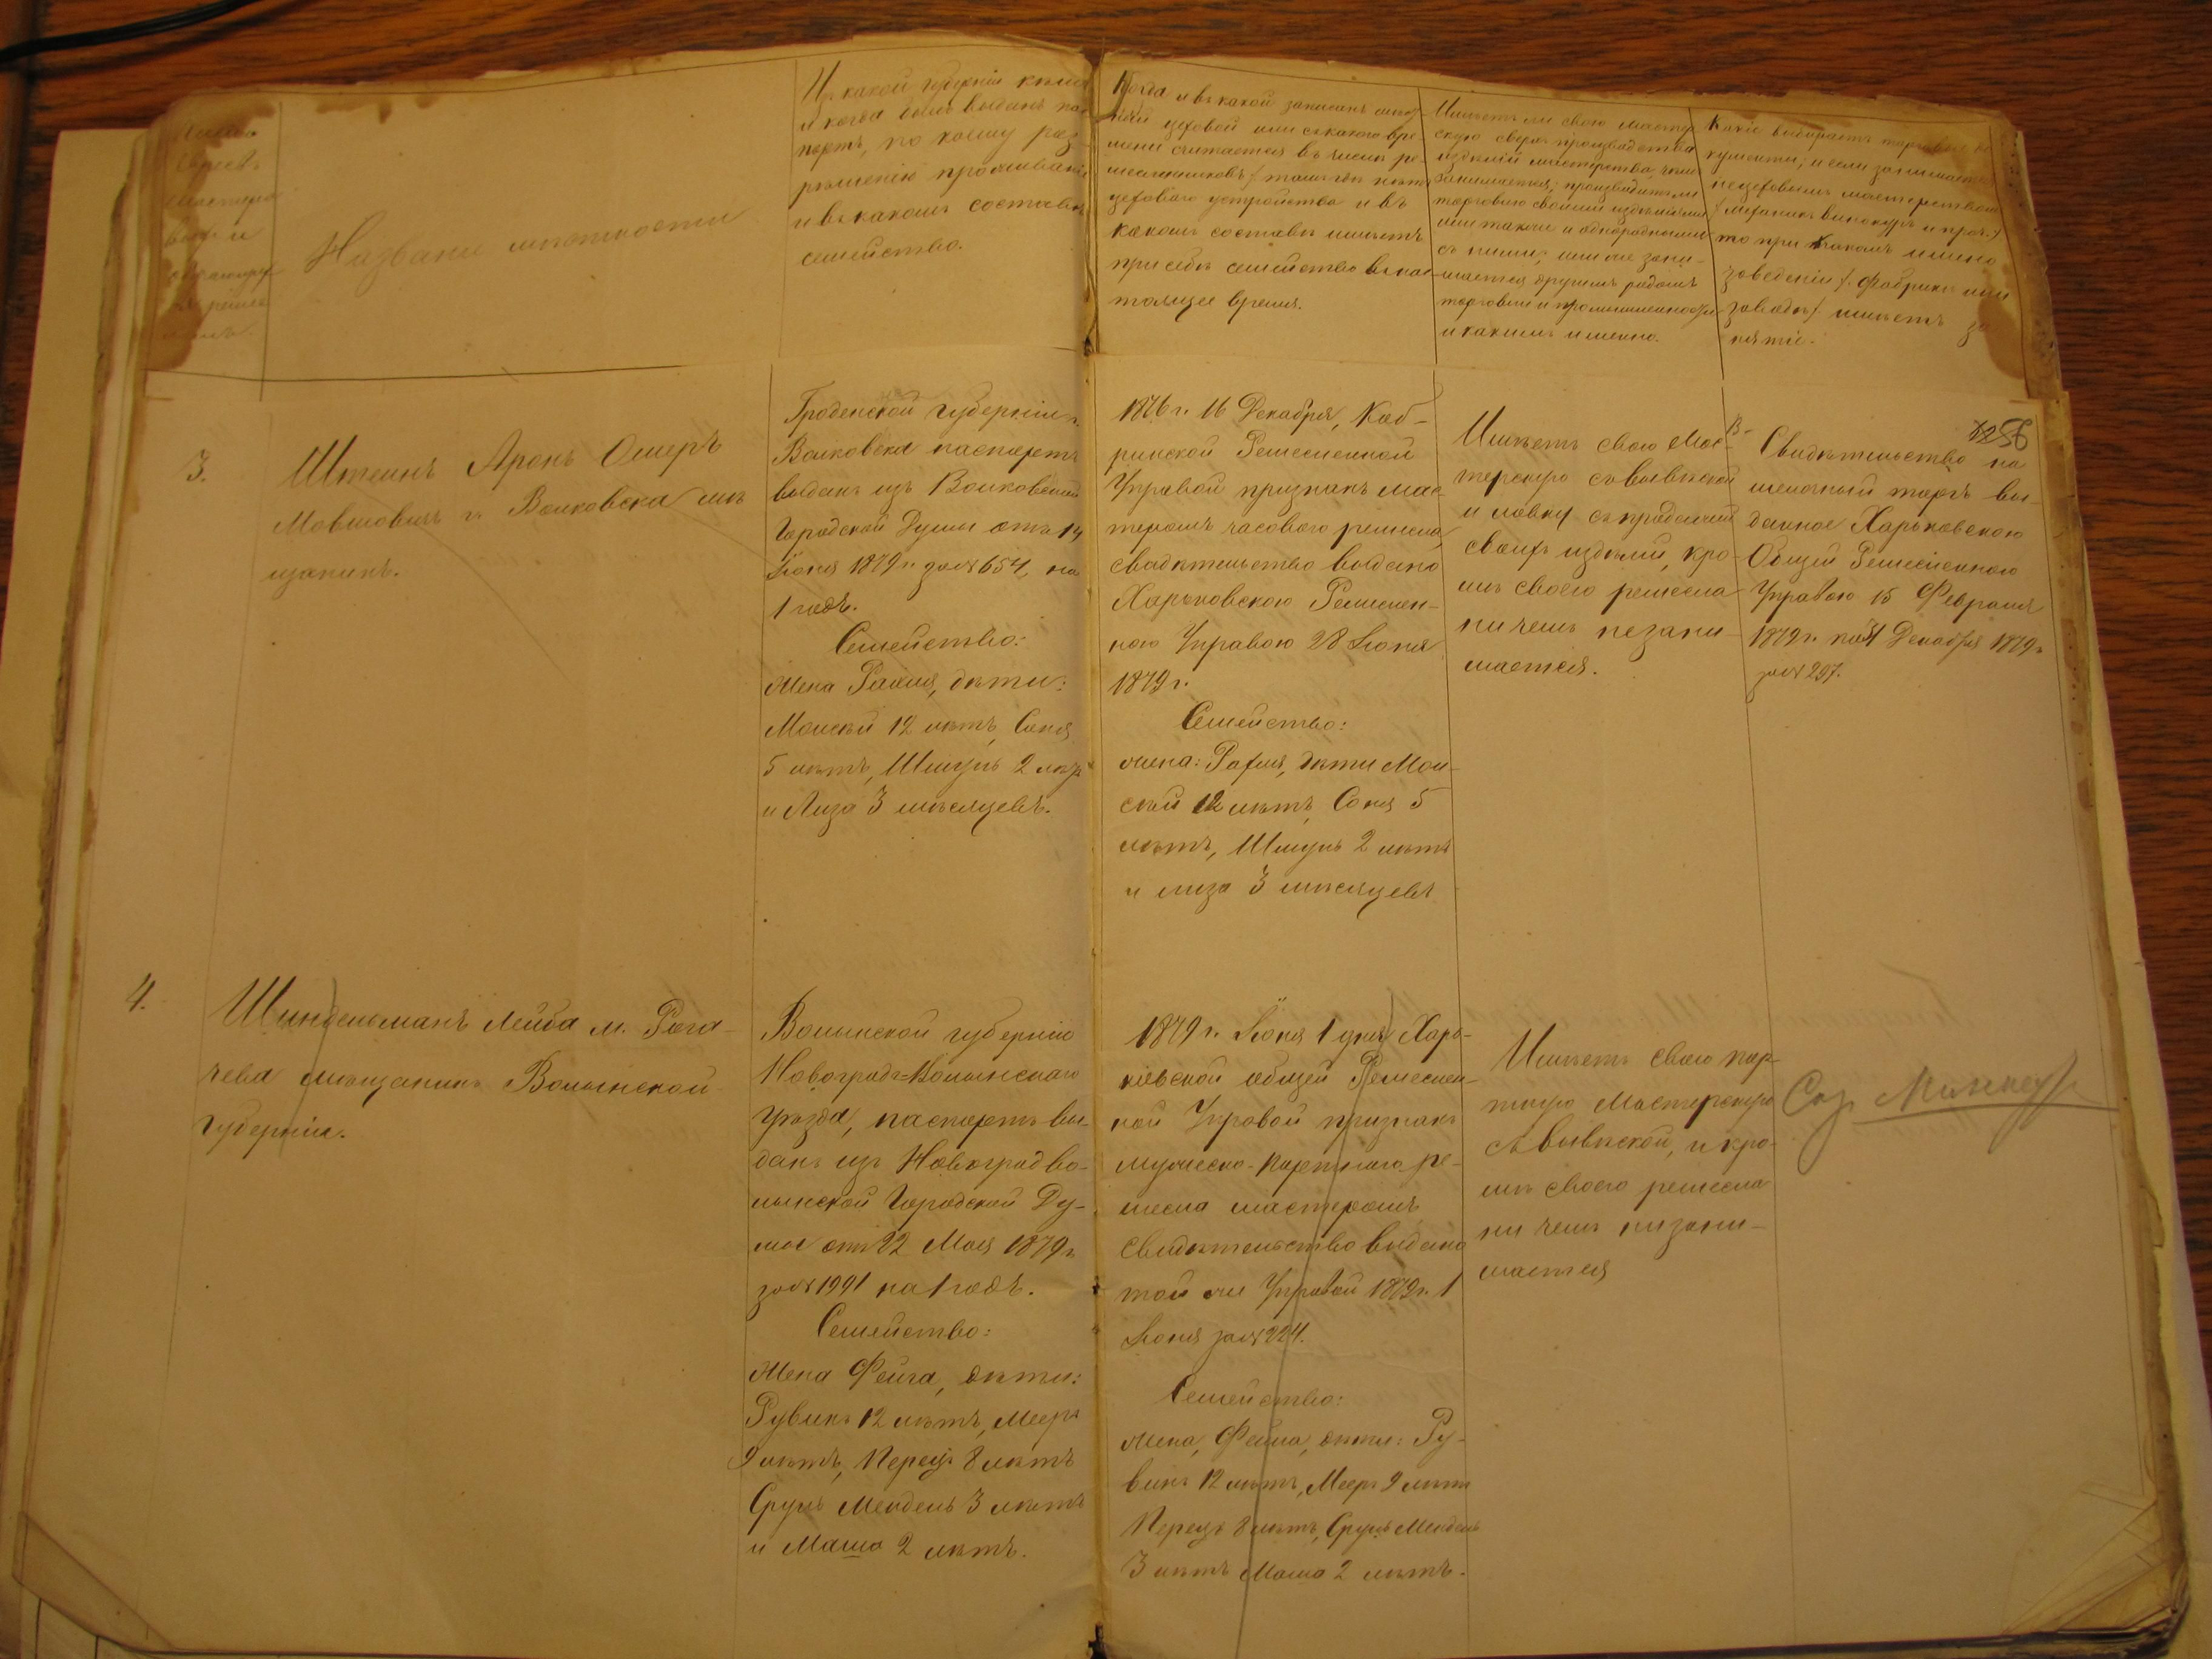 Названи местности
Из какой губерніи кѣмъ
и когда былъ выданъ пас
портъ, по коему раз-
рѣшенію проживаніе
и въ какомъ составѣ
семейство.
Когда и въ какой записанъ
цеховой или съ какого вре-
мени считается въ числѣ ре-
месленниковъ /тамъ гдѣ нѣтъ
цеховаго устройства и въ
какомъ составѣ имѣетъ
при себѣ семейство въ нас-
тоящее время.
Имѣетъ ли свою мастер
скую сверхъ производства
издѣлій мастерства, чѣмъ
занимается; производитъ ли
торговлю своими издѣліями
или также и однородными
съ ними; или не зани-
мается другимъ родомъ
торговли и промышленности
и какимъ именно.
Какіе выбираетъ торговые до
кументы; и если занимается
нецеховымъ мастерствомъ
/механикъ винокуръ и проч./
то при какомъ имено
заведеніи /. фабрикѣ или
заводѣ/ имѣетъ за
нятіе.
3.
Штеинъ Аронъ Ошеръ
Мовшовичъ г. Волковска мѣ
щанинъ.
Гроденской губерніи г.
Волковска паспортъ
выданъ изъ Волковской
Городской Думы отъ 14
Іюня 1879 г. за № 654, на
1 годъ.
Семейство:
Жена Рахиля, дѣти:
Моисѣй 12 лѣтъ, Соня
5 лѣтъ, Шмуль 2 лѣтъ
и Лиза 3 мѣсяцевъ.
1876 г. 16 Декабря, Коб-
ринской Ремесленной
Управой признанъ мас-
теромъ часового ремесла,
свидѣтельство выдано
Харьковскою Ремеслен-
ною Управою 28 Іюня
1879 г.
Семейство:
жена: Рахиля, дѣти Мои-
сѣй 12 лѣтъ, Соня 5
лѣтъ, Шмуль 2 лѣтъ
и лиза 3 мѣсяцевъ
Имѣетъ свою Мас-
терскую съ вывѣской
и лавку съ продажей
своихъ издѣлій, кро-
мѣ своего ремесла
ни чемъ незани-
мается.
Свидѣтельство на
мелочный торгъ вы-
данное Харьковскою
Общей Ремесленною
Управою 15 Февраля
1879 г. по 31 Декабря 1879 г.
за № 297.
4.
Шиндельманъ Лейба м. Рога-
чева мѣщанинъ Волынской
Губерніи.
Волынской губерніи
Новоградъ=Волынскаго
уѣзда, паспортъ вы-
данъ изъ Новоградво-
лынской Городской Ду-
мы отъ 22 Мая 1879 г.
за № 1991 на 1 годъ.
Семейство:
Жена Фейга, дѣти:
Рувинъ 12 лѣтъ, Мееръ
9 лѣтъ, Перецъ 8 лѣтъ
Сруль Мендель 3 лѣтъ
и Маша 2 лѣтъ.
1879 г. Іюня 1 дня Харь-
ковской общей Ремеслен-
ной Управой признанъ
мужеско-портнаго ре-
месла мастеромъ
свидѣтельство выдано
той же Управой 1879 г. 1
Іюня за № 224.
Семейство:
Жена, Фейга, дѣти: Ру-
винъ 12 лѣтъ, Мееръ 9 лѣтъ
Перецъ 8 лѣтъ, Сруль Мендель
3 лѣтъ Маша 2 лѣтъ.
Имѣетъ свою пор-
тную Мастерскую
съ вывѣской, и кро-
мѣ своего ремесла
ни чемъ низани-
мается